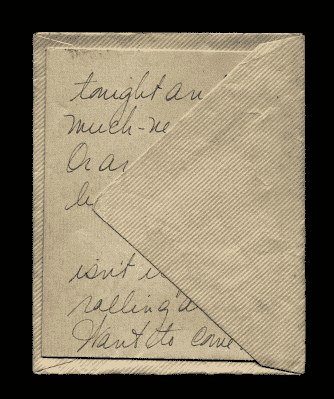 tonight an
much-ne
Or as
be
isn't i
rolling a
Want to come